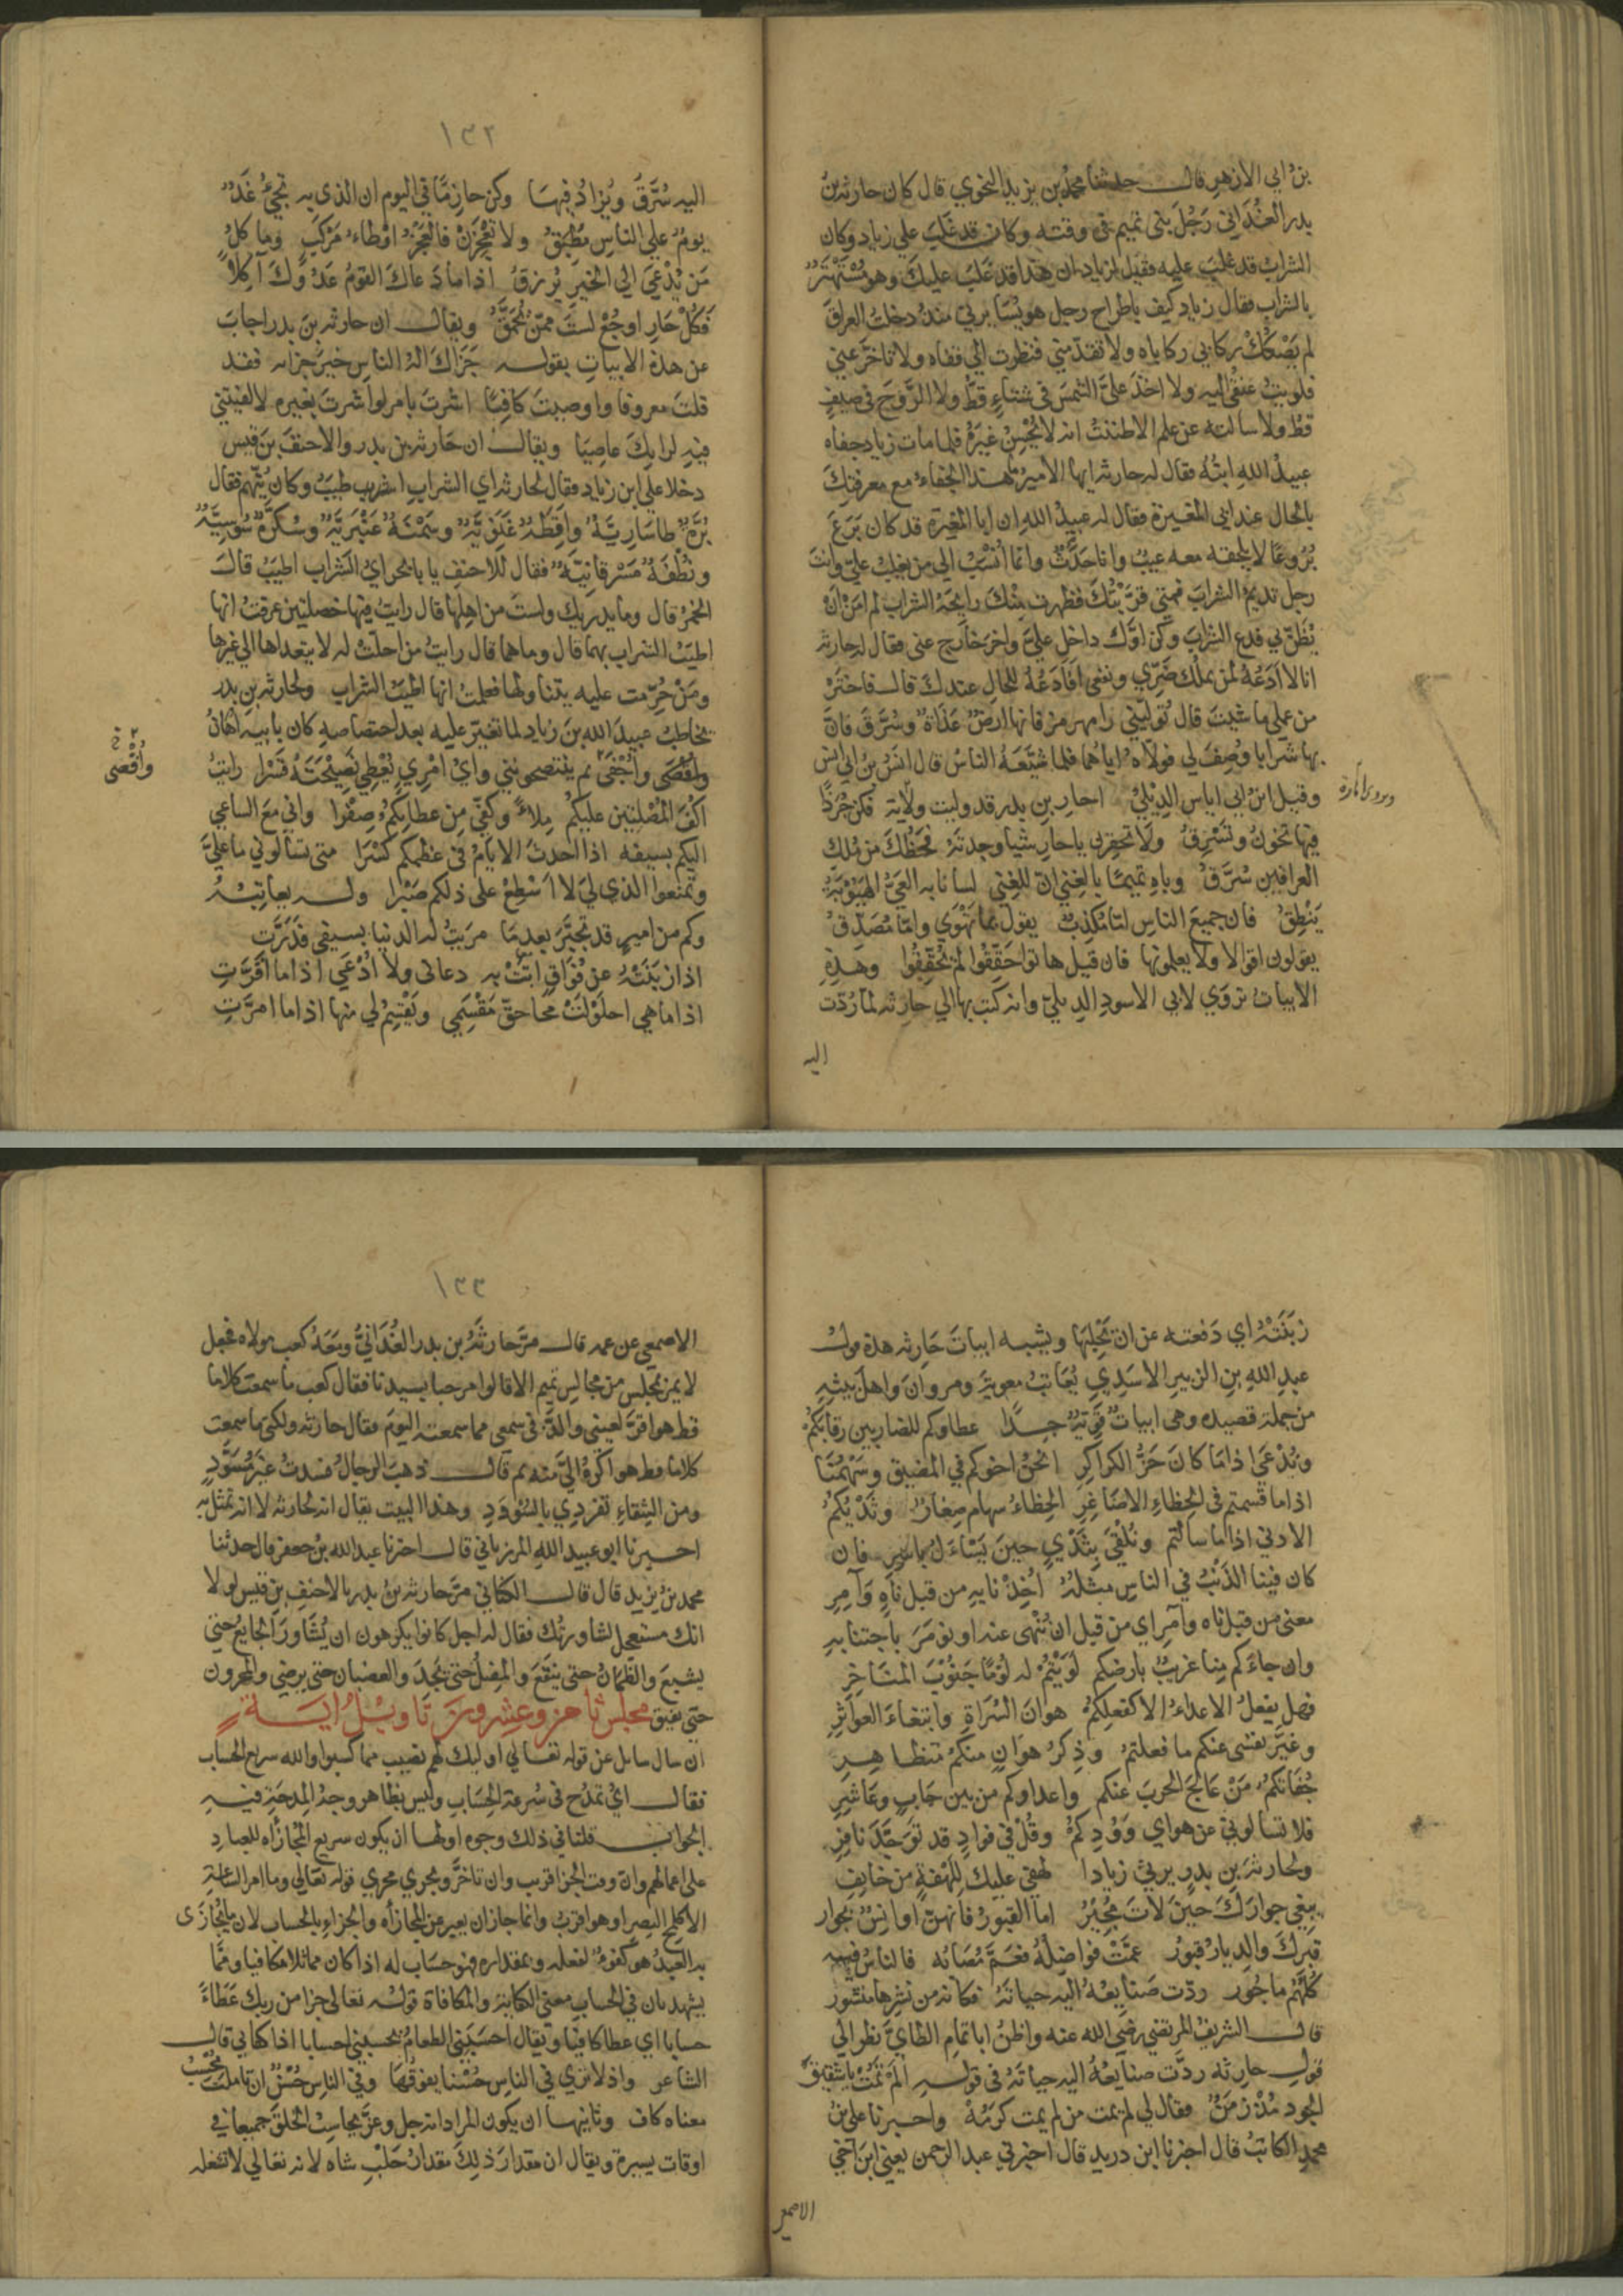 بن ابي الازهر قال حدثنا محمد بن يزيد النحوي قال كان حارثة بن
بدر الغُدَاني رَجُلَ بني تميم في وقته وكان قد غلب على زياد وكان
الشراب قد غلب عليه فقيل لزياد ان هذا قد غَلَبَ عليك وهو مُسْتَهْتَرٌ
بالشراب فقال زياد كيف باطراح رجل هو يُسَايرني منذ دخلتُ العراق
لم يَصْكُكْ ركابي ركاباه ولا تقدّمني فنظرت الي قفاه ولا تاخّر عني
فلويتُ عنقي اليه ولا اخذ عليَّ الشمسَ في شتاءٍ قطّ ولا الرَّوْحَ في صيفٍ
قطّ ولا سالته عن علم الا ظننتُ انه لا يُحْسِنُ غيرَهُ فلما مات زياد جفاه
عبيدُ اللهِ ابنُهُ فقال له حارثة ايها الامير ما هذا الجفاءُ مع معرفتِكَ
بالحال عند ابي المغيرة فقال له عبيدُ اللهِ ان ابا المغيرة قد كان بَرَعَ
بُرُوعًا لا يلحقه معه عيبٌ وانا حَدَثٌ وانما أُنْسَبُ الي من يغلبُ عليّ وانت
رجل تديمُ الشرابَ فمتي قرَّبْتُكَ فظهرت مِنْكَ رايحةُ الشراب لم امَنْ انْ
يُظَنَّ بي فدع الشراب وكن اوّلَ داخل عليَّ واخرَ خارج عني فقال له حارثة
انا لا ادَعُهُ لمن يملك ضَرّي ونفعي افَادَعُهُ للحال عندك قال فاختَرْ
من عملي ما شيت قال تُولّيني رامهرمز فانها ارضٌ عَذَاةٌ وسُرَّق فانّ
بها شرابا وُصِفَ لي فولّاهُ اياهما فلما شَيَّعَهُ الناسُ قال انس بن ابي انس
وقيل ابن ابي اياس الديلي احارِ بن بدر قد وليت ولاية فكن جُرَذًا
فيها تخون وتسرق ولا تحقرن يا حارِ شيا وجدتَهُ فحَظُّكَ من مُلكِ
العراقين سُرَّقُ وباهِ تميمًا بالغِني انّ للغِني لسانا به العَيُّ الهَيُوبَةُ
يَنْطِقُ فان جميعَ الناسِ امّا مُكَذِّبٌ يقول بما يَهْوَي وامّا مُصَدِّقُ
يقولون اقوالا ولا يعلمونها فان قيل هاتوا حَقِّقُوا لم يُحَقِّقُوا وهذِهِ
الابياتُ تروَي لابي الاسود الديليّ وانه كتب بها الي حارثة لما رُدّت
اليه
اليه سُرَّقُ ويُزادُ فيها وكن حازمًا في اليوم ان الذي به يجيُ غدٌ
يومٌ علي الناسِ مُطْبِقُ ولا تعْجِزَنْ فالعَجْزُ اوْطَاءُ مَرْكَبٍ وما كلُّ
مَن يُدْعَي الي الخير يُرزقُ اذا ما دَعاكَ القومُ عَدُّوكَ آكِلًا
فكُلْ حارِ او جُعْ لستَ ممّن يُحَمَّقُ ويقال ان حارثة بنَ بدر اجابَ
عن هذه الابياتِ بقوله جَزَاكَ الهُ الناسِ خيرَ جزائه فقد
قلتَ معروفا واوصيتَ كافيًا اشرتَ بامر لو اشرتَ بغيره لالفيتني
فيه لرايك عاصيا ويقال ان حارثة بن بدر والاحنفَ بنَ قيس
دخلا علي ابن زياد فقال لحارثة اي الشراب اطيب وكان يُتّهم فقال
بُرَّةٌ طاسَارِيَّةٌ واَقِطَةٌ غَنَوِيَّةٌ وسَمْنَةٌ عَنْبَرِيَّةٌ وسُكَّرَةٌ سُوسِيَّةٌ
ونُطْفَةٌ مَسْرقانِيّةٌ فقال للاحنف يا با بحر ايُ الشراب اطيبُ قال
الخمرُ قال وما يدريك ولستَ من اهلها قال رايتُ فيها خصلتين عرفتُ انها
اطيبُ الشراب بهما قال وما هما قال رايت من احلّتْ له لا يتعداها الي غيرها
ومَنْ حُرِّمت عليه يتناولها فعلمت انها اطيبُ الشراب ولحارثة بن بدر
يخاطبُ عبيدَ الله بنَ زياد لما تغيّر عليه بعد اختصاصه كان بابيه اُهانُ
وأُقصَي وأُجْفَى ثم ينتصحونني وأيُّ امْرِي يُعْطِي نَصِيحَتَهُ قَسْرا رايتُ
اكفّ المُصْلِتِين عليكمُ مِلاءً وكفّي مِن عطاياكُمُ صِفْرا واني معَ الساعي
اليكم بسيفه اذا احدثَ الايّامُ في عظمكم كَسْرَا متى تسالوني ما عليَّ
وتمنعوا الذي ليَ لا اَسْطِعْ على ذلكم صَبْرا وله يعاتِبُهُ
وكم من اميرٍ قد تَجَبَّرَ بعدمَا مريتُ له الدنيا بسيفي فَدَرَّتِ
اذا زبَنَتْهُ عن فُوَاقٍ اتَتْ به دعاني ولا اُدْعَي اذا ما اَقَرَّتِ
اذا ما هي احلَوْلَتْ مَحَا حقّ مَقْسَمِي ويَقْسِمُ لي منها اذا ما امرَّتِ
وأُقْصَى
زَبَنَتْهُ اي دَفعته عن ان يَحْلِبَها ويشبه ابياتَ حَارثة هذه قولُ
عبدِ اللهِ بنِ الزبير الاسَدِي يُعَاتبُ معوية ومروانَ واهلَ بيتِهِ
من جملة قصيده وهي ابياتٌ قَوِيّةٌ جِدًّا عطاوكم للضاربين رقابَكُمْ
ونُدْعَي اذا مَا كانَ حَزُّ الكراكِرِ انحنُ اخوكم في المضيق وسَهْمُنَا
اذا ما قسمتم في الحِظاءِ الاصَاغِرِ الحِظاءُ سِهام صِغارٌ وثَدْيُكُمُ
الادني اذا ما سالتُم ونُلْقَي بِثَدْيٍ حينَ يَسَّاءَلُ باسِرِ فان
كان فينا الذَنْبُ في الناسِ مِثلُهُ أُخِذْنا به من قبل ناهٍ وَآمِرِ
معني من قبل ناه وآمرٍ اي من قبل ان نُنْهى عنه او نومَرَ باجتنابهِ
وان جاءكم مِنا غريبٌ بارضكم لوَيْتُمْ له لوْمًا جَنُوبَ المَنَاخِرِ
فهل يفعلُ الاعداءُ الا كفعلِكُمْ هوانَ السُرَاةِ وابتغاءَ العواثِرِ
وغَيَّرَ نفسى عنكم ما فعلتمُ وذِكرُ هوَانٍ منكمُ متظاهِرِ
جُفَاتكُمُ مَنْ عَالجَ الحربَ عنكم واعداوكم من بين جَابٍ وعَاشِرِ
فلا تسالوني عن هوايَ وَوُدِكمْ وقُلْ في فوادٍ قد تَوَجَّهَ نافِرِ
ولحارثة بن بدر يرثي زيادا لهفي عليك لِلَهْفَةٍ من خايِفٍ
يبغي جوارَكَ حينَ لاتَ مُجِيْرُ امّا القبورُ فانهنّ اوانِسٌ بجوار
قبركَ والديارُ قبورُ عمّتْ فواضِلُهُ فعَمَّ مُصَابُه فالناسُ فيه
كلّهُم ماجُور ردّت صَنايعُهُ اليه حياتَهُ فكانه من نشرها منشور
قال الشريفُ المرتضى رضي الله عنه واظنُّ ابا تمام الطايّ نظر الي
قولِ حارثة ردَّت صنايعُهُ اليه حياتَهُ في قوله ألَمْ تَمُتْ يا شقيقَ
الجود مُذْ زمَنٌ فقال لي لم يمت من لم يمت كرَمُهْ واخبرنا علىُّ بنُ
محمد الكاتبُ قال اخبرنا ابن دريد قال اخبرني عبد الرحمن يعني ابنَ اخي
الاصمعي
الاصمعي عن عمه قال مرّ حارثةُ بن بدر الغُدَانيُّ ومعَهُ كعب مولاه فجعل
لا يمرّ بمجلس من مجالس تميم الا قالوا مرحبا بسيدنا فقال كعب ما سمعت كلاما
قط هو اقرّ لعيني والذّ في سمعي مما سمعته اليومَ فقال حارثة ولكنّي ما سمعت
كلاما قط هو اكرَهُ اليّ منه ثم قال ذهبَ الرجالُ فسدتُ غيرَ مُسَوَّدٍ
ومن الشقاءِ تفردِي بالسُوودَدِ وهذا البيت يقال انه لحارثة لا انه تمثل به
اخبرنا ابو عبيد اللهِ المرزباني قال اخبرنا عبد الله بن جعفر قال حدثنا
محمد بن يزيد قال قال الكناني مرَّ حارثة بنُ بدر بالاحنفِ بنِ قيس لولا
انك مستعجل لشاورتُك فقال له اجل كانوا يكرهون ان يُشَاوَرَ الجايعُ حتي
يشبعَ والظّمانُ حتى ينقَعَ والمضِلُّ حتى يَجِدَ والغضبان حتي يرضي والمحزون
حتى يفيق مجلس اخر وعشرون تَاويلُ ايةٍ
ان سال سايل عن قوله تعالي اوليك لهم نصيب مما كسبوا والله سريع الحساب
فقال ايُّ تمدُّح في سُرعة الحِسَابِ وليس بظاهر وجهُ المِدحَةِ فيهِ
الجوابُ قلنا في ذلك وجوه اولها ان يكون سريع المجازاه للعبادِ
على اعمالهم وانّ وقت الجزا قريب وان تاخّر ويجري مجري قوله تعالي وما امر الساعة
الا كلمح البصر او هو اقربُ وانما جاز ان يعبر عن المجازاه والجزاءِ بالحساب لان ما يُجازَى
به العبدُ هو كفوٌ لفعله وبمقداره فهو حسَاب له اذا كان مماثلا مكافيا ومّما
يشهد بان في الحساب معنى الكفاية والمكافاة قولُه تعالى جزا من ربك عَطَاءً
حسابا اي عطا كافيا ويقال احسَبَنِي الطعامُ يحسبني احسابا اذا كفاني قال
الشاعر واذ لا تري في الناسِ حُسْنا يفوقُها وفي الناسِ حُسْنٌ ان تاملت مُحْسِبُ
معناه كاف وثانيها ان يكون المرادانه جل وعزّ يحاسبُ الخلقَ جميعا في
اوقات يسيرة ويقال ان مقدارَ ذلِكَ مقدارُ حَلْبِ شاه لانه تعالي لا تشغله